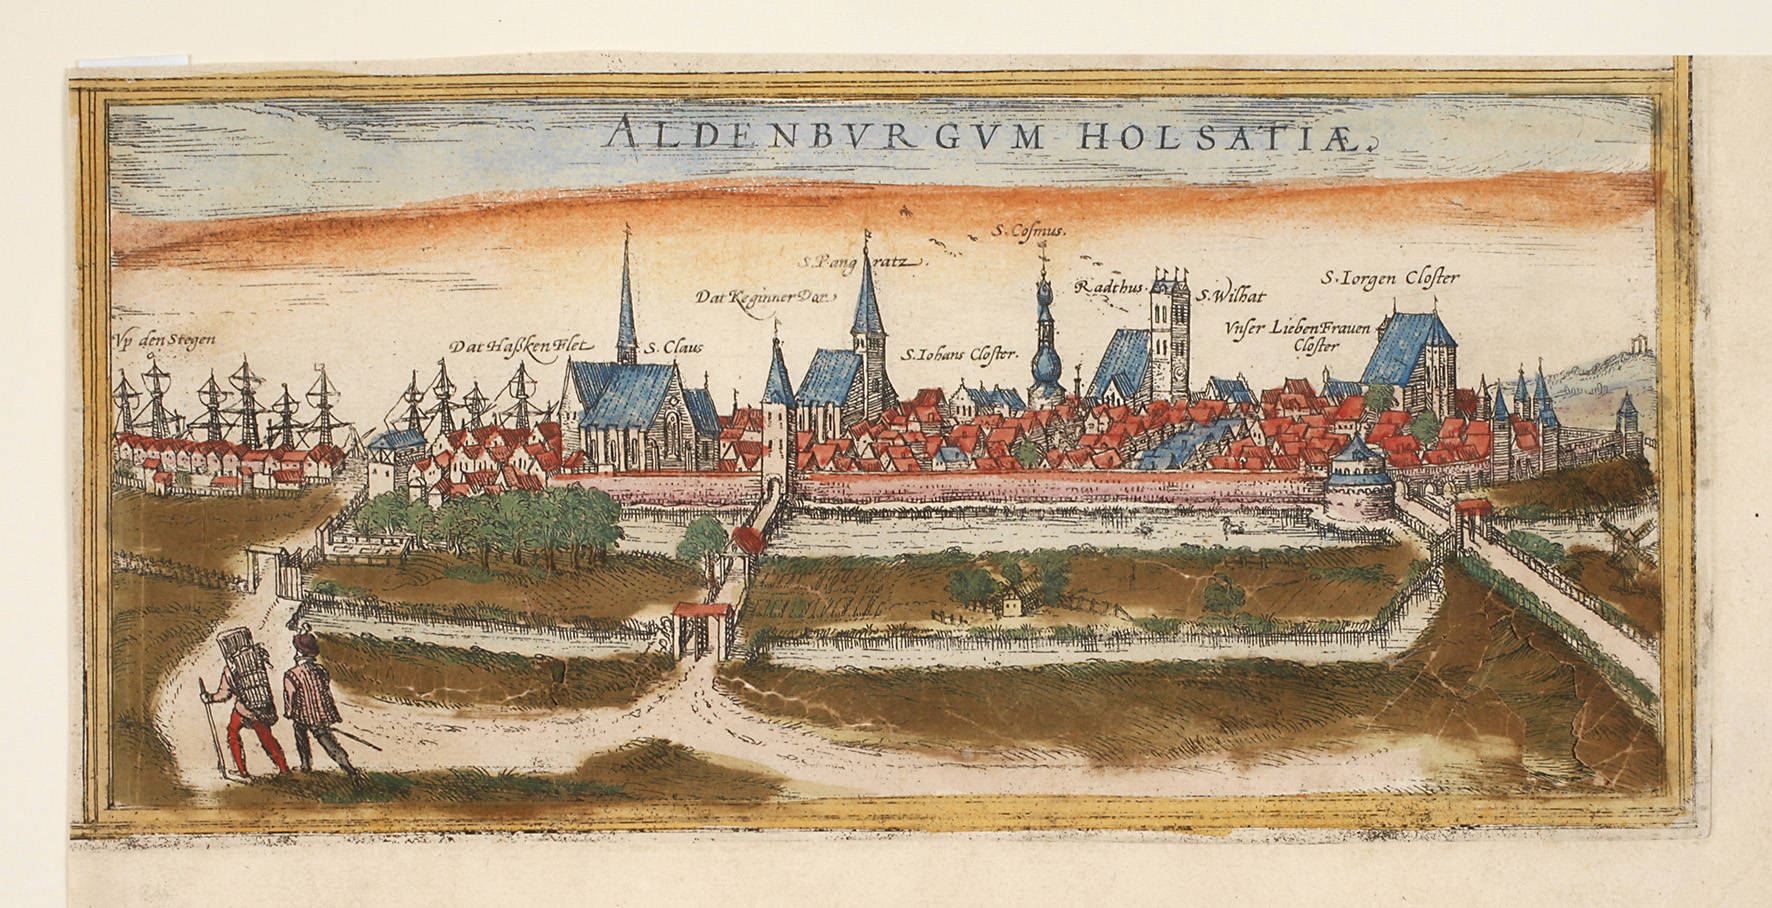 ALDENBVRGVM HOLSATIÆ
S. Cosmus.
S. Pangratz.
S. Iorgen Closter
Radthus.
S. Wilhat
Dat Keginner Dor
Vnser Lieben Frauen
Closter
Vp den Stegen
Dat Haßken Flet
S. Claus
S. Iohans Closter.